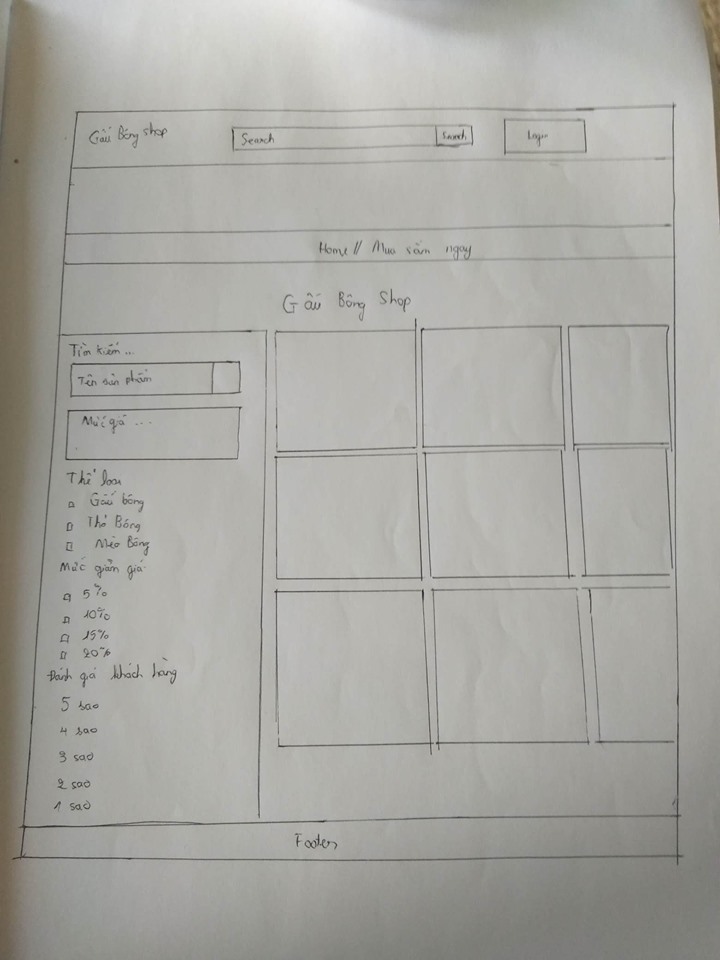 Gấu Bông shop
Search
Search
Login
Home // Mua sắm ngay
Gấu Bông Shop
Tìm kiếm ...
Tên sản phẩm
Mức giá ...
Thể loại
Gấu bông
Thỏ Bông
Mèo Bông
Mức giảm giá
5%
10%
15%
20%
Đánh giá khách hàng
5 sao
4 sao
3 sao
2 sao
1 sao
Footer